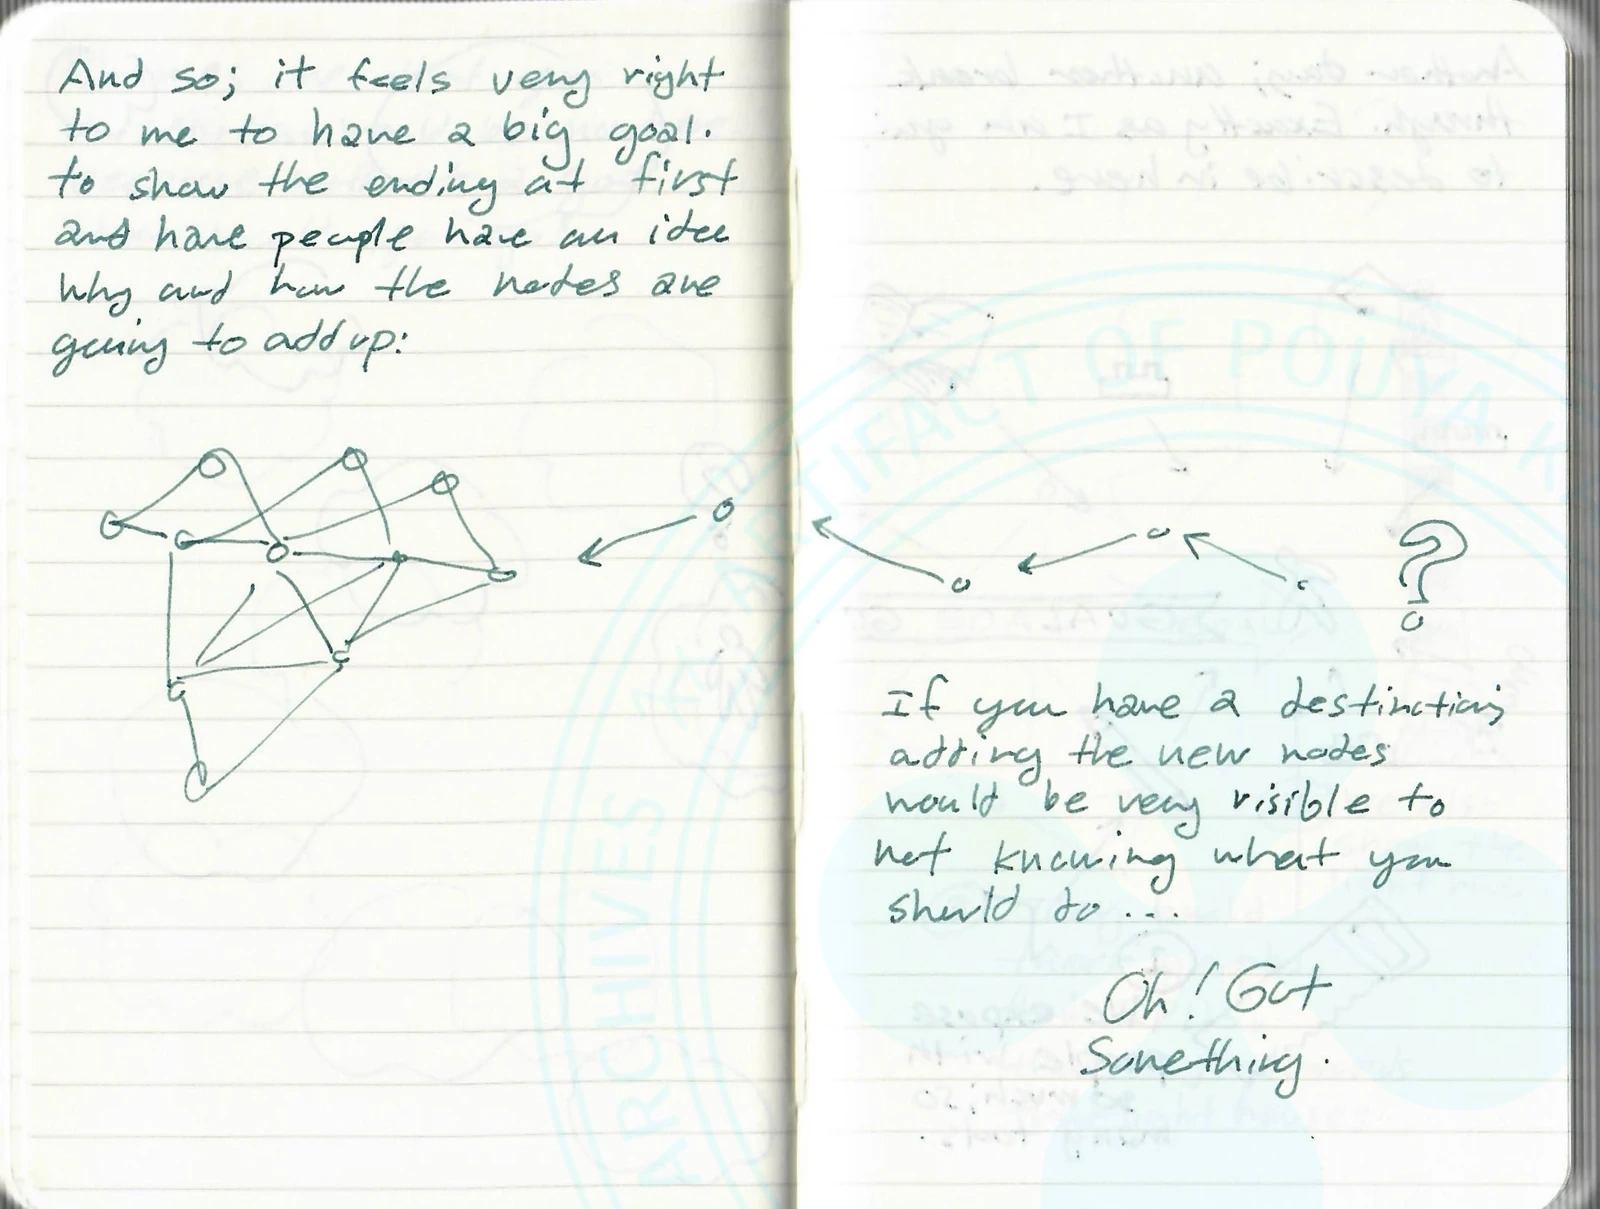 And so; it feels very right
to me to have a big goal.
to show the ending at first
and have people have an idea
why and how the nodes are
going to add up:
?
If you have a destination;
adding the new nodes
would be very visible to
not knowing what you
should do ...
Oh! Got
Something.
ARCHIVES
ARTIFACT OF POUYA K